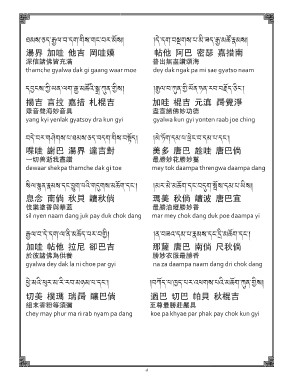 ཐམས་ཅད་རྒྱལ་བ་དག་གིས་གང་བར་མོས།
邊界 加哇 他吉 岡哇嫫
深信諸佛皆充滿
thamche gyalwa dak gi gang waar moe
དབྱངས་ཀྱི་ཡན་ལག་རྒྱ་མཚོའི་སྒྲ་ཀུན་གྱིས།
揚吉 言拉 嘉措 札棍吉
眾音聲海妙音具
yang kyi yenlak gyatsoy dra kun gyi
བདེ་བར་གཤེགས་པ་ཐམས་ཅད་བདག་གིས་བསྟོད།
喋哇 謝巴 邊界
一切善逝我讚譽
dewaar shekpa thamche dak gi toe
སིལ་སྙན་རྣམས་དང་བྱུག་པའི་གདུགས་མཆོག་དང་།
息念 南倘 秋貝 讀秋倘
伎樂塗香與華蓋
sil nyen naam dang juk pay duk chok dang
རྒྱལ་བ་དེ་དག་ལ་ནི་མཆོད་པར་བགྱི།
加哇 帖他 拉尼 卻巴吉
於彼諸佛為供養
gyalwa dey dak la ni choe par gyi
ཕྱེ་མའི་ཕུར་མ་རི་རབ་མཉམ་པ་དང་།
切美 樸瑪 瑞繞 孃巴倘
細末香粉等須彌
chey may phur ma ri rab nyam pa dang
དེ་དག་བསྔགས་པ་མི་ཟད་རྒྱ་མཚོ་རྣམས།
帖他 阿巴 密瑟 嘉措南
dey dak ngak pa mi sae gyatso naam
རྒྱལ་བ་ཀུན་གྱི་ཡོན་ཏན་རབ་བརྗོད་ཅིང་།
加哇 棍吉
gyalwa kun gyi yonten raab joe ching
མེ་ཏོག་དམ་པ་ཕྲེང་བ་དམ་པ་དང་།
美多 唐巴 趁哇 唐巴倘
最勝妙花勝妙鬘
mey tok daampa threngwa daampa dang
མར་མེ་མཆོག་དང་བདུག་སྤོས་དམ་པ་ཡིས།
瑪美 秋倘 讀波 唐巴宜
mar mey chok dang duk poe daampa yi
ན་བཟའ་དམ་པ་རྣམས་དང་དྲི་མཆོག་དང་།
那薩 唐巴 南倘 尺秋倘
勝妙衣服最勝香
na za daampa naam dang dri chok dang
བཀོད་པ་ཁྱད་པར་འཕགས་པའི་མཆོག་ཀུན་གྱིས།
切巴 帕貝 秋棍吉
koe pa khyae par phak pay chok kun gyi
4